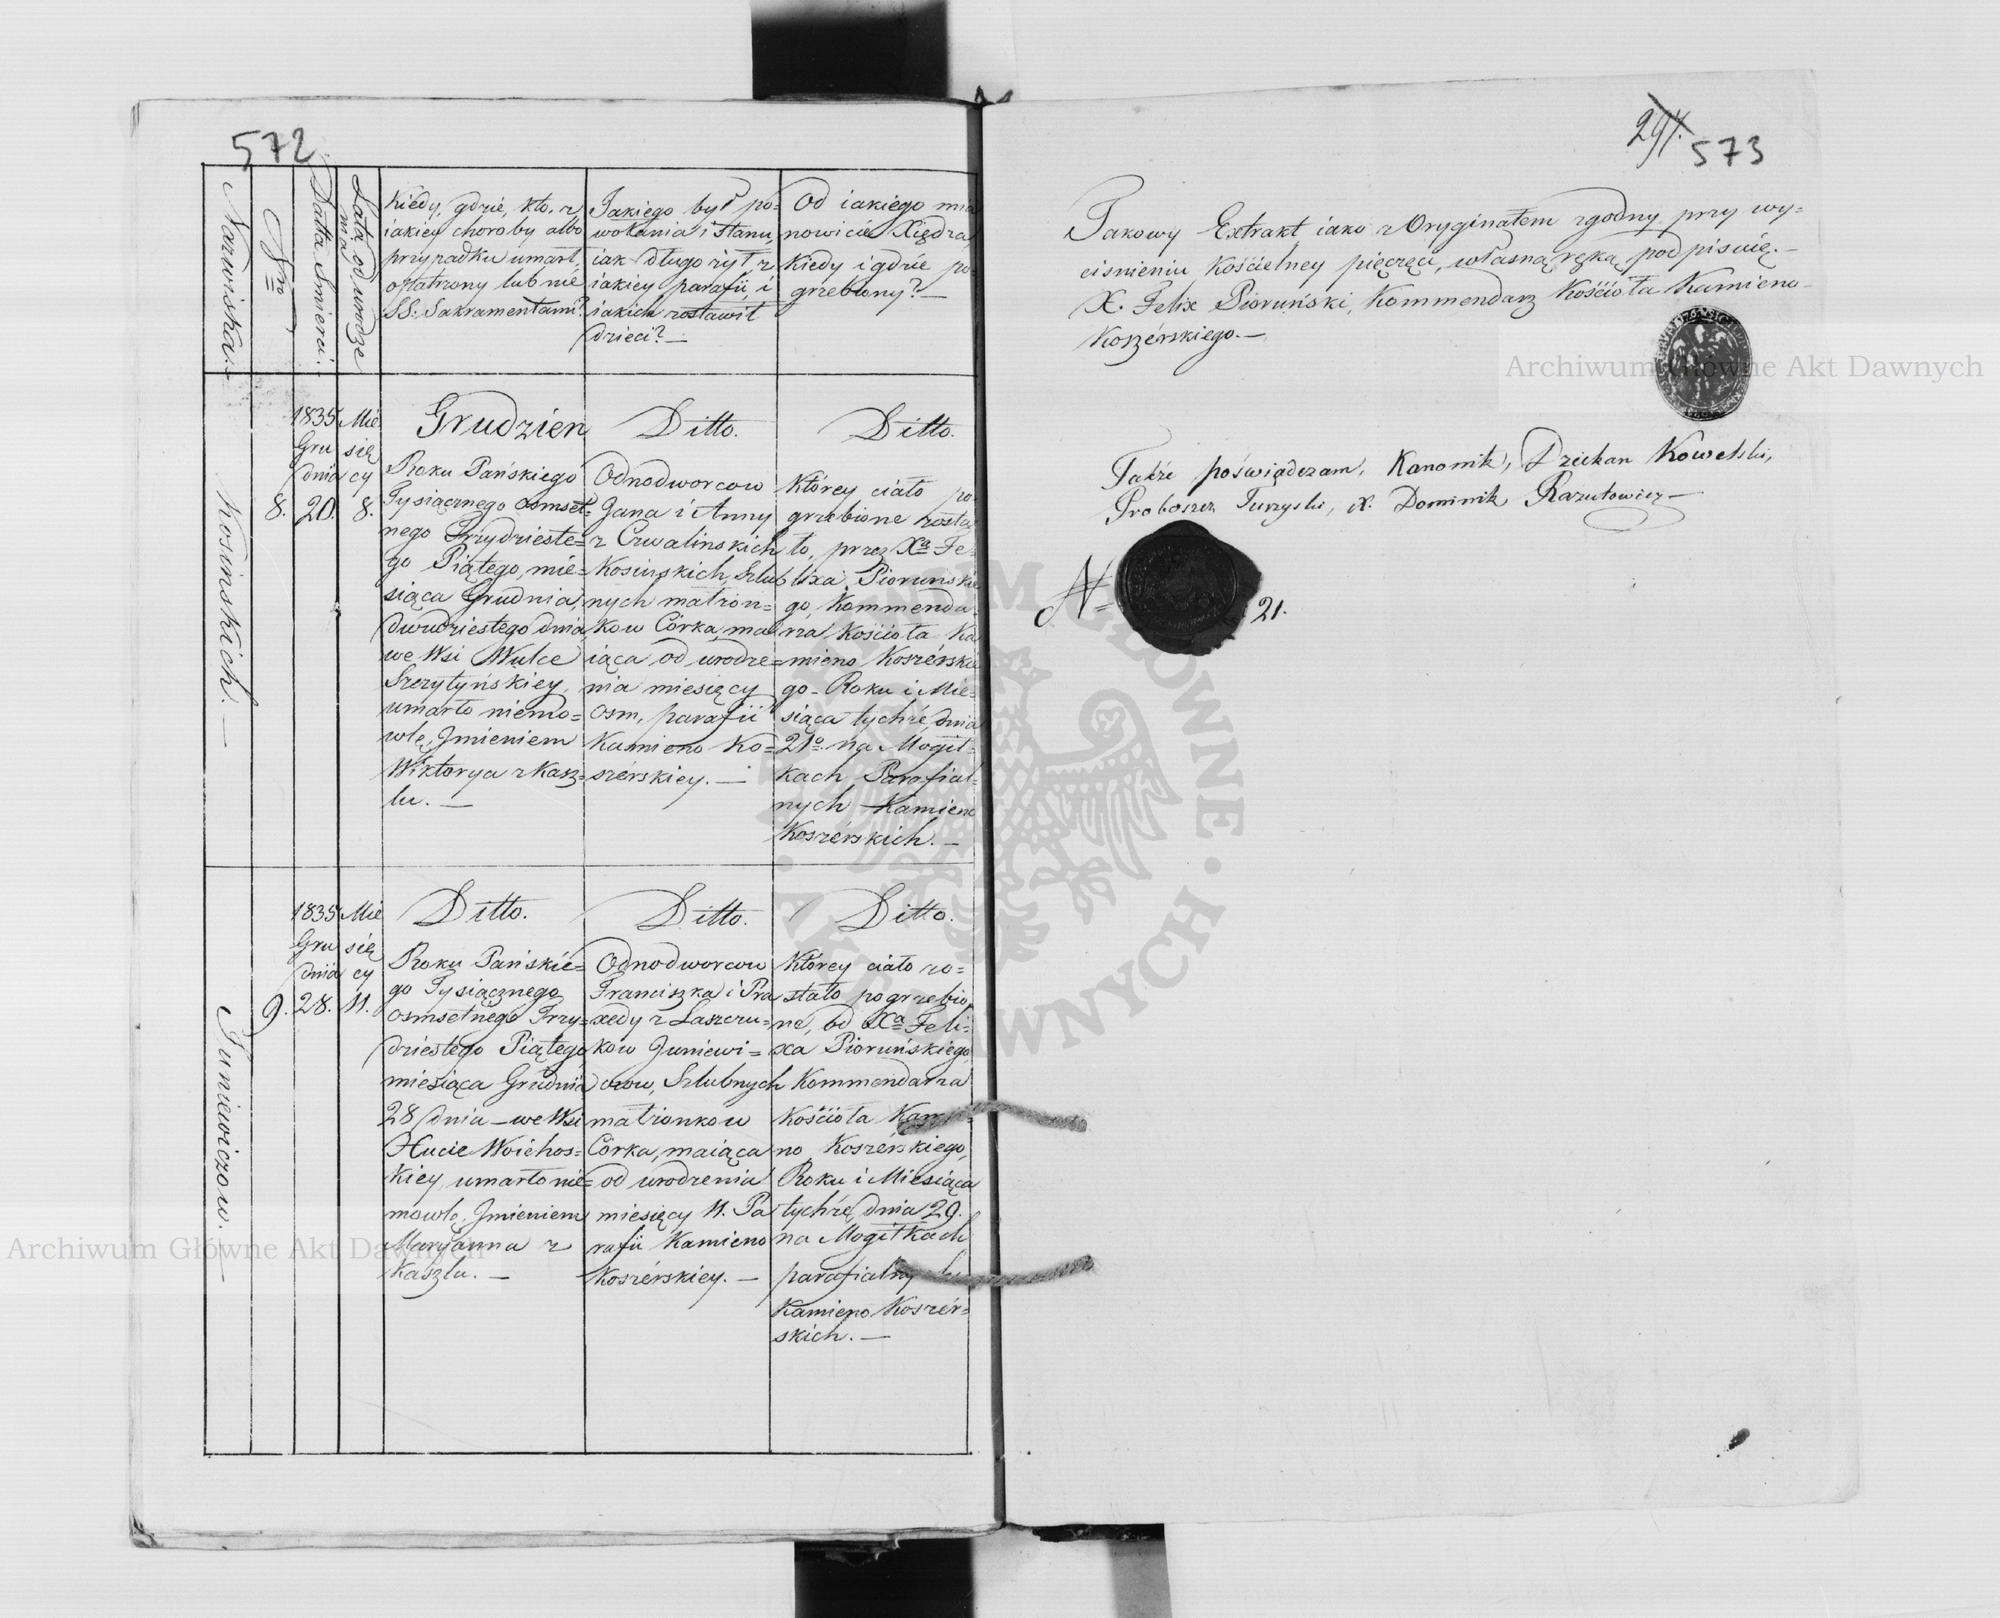 572
Nazwiska.
Nro
Datta Smierci.
Lata od urodze
nia
Kiedy, gdzie, kto, z
iakiey choroby albo
przypadku umarł,
opatrzony lub nie
SS: Sakramentami?
Jakiego był po=
wołania i stanu,
iak długo żył z
iakiey parafii, i
iakich zostawił
dzieci? —
Od iakiego mia
nowicie Xiędza,
kiedy i gdzie po
grzebiony? —
Kosinskich. —
8.
1835
Gru
dnia
20.
Mie
się
cy
8.
Grudzien
Roku Pańskiego
Tysiącznego osmset=
nego Trzydzieste=
go Piątego, mie=
siąca Grudnia,
dwudziestego dnia
we Wsi Wulce
Szczytyńskiey,
umarło niemo=
wlę, Jmieniem
Wiktorya z Kasz=
lu. —
Ditto.
Odnodworcow
Jana i Anny
z Czwalinskich
Kosinskich, Szlub
nych małżon=
kow Córka, ma
iąca od urodze=
nia miesięcy
osm, parafii
Kamieno Ko=
szérskiey. —
Ditto.
Którey ciało po
grzebione zosta
ło, przez Xa Fe=
lixa Pioruńskie
go, Kommenda
rza Kościoła Ka
mieno Koszérskie
go - Roku i Mie=
siąca tychże, dnia
21o na Mogił=
kach Parafial=
nych Kamieno
Koszérskich. —
Juniewiczow. —
9.
1835
Gru
dnia
28.
Mie
się
cy
11.
Ditto.
Roku Pańskie=
go Tysiącznego
osmsetnego Trzy=
dziestego Piątego
miesiąca Grudnia
28 dnia — we Wsi
Hucie Woiehos=
kiey umarło nie=
mowlę, Jmieniem
Maryanna z
Kaszlu. —
Ditto.
Odnodworcow
Franciszka i Pra
xedy z Laszczu=
kow Juniewi=
czow, Szlubnych
małżonkow
Córka, maiąca
od urodzenia
miesięcy 11. Pa
rafii Kamieno
Koszérskiey. —
Ditto.
Którey ciało zo=
stało pogrzebio
ne, od Xa Feli=
xa Pioruńskiego,
Kommendarza
Kościoła Kamie=
no Koszérskiego,
Roku i Miesiąca
tychże, dnia 29.
na Mogiłkach
parafialnych
Kamieno Koszér=
skich. —
291.
573
Takowy Extrakt iako z Oryginałem zgodny, przy wy=
ciśnieniu Kościelney pięczęci, własną ręką podpisuię. —
X. Felix Pioruński, Kommendarz Kościoła Kamieno
Koszérskiego. —
Także poświadczam, Kanonik, Dziekan Kowelski,
Proboszcz Turzyski, X. Dominik Razutowicz —
N=
21.
Archiwum Główne Akt Dawnych
Archiwum Główne Akt Dawnych
ARCHIWUM GŁÓWNE AKT DAWNYCH